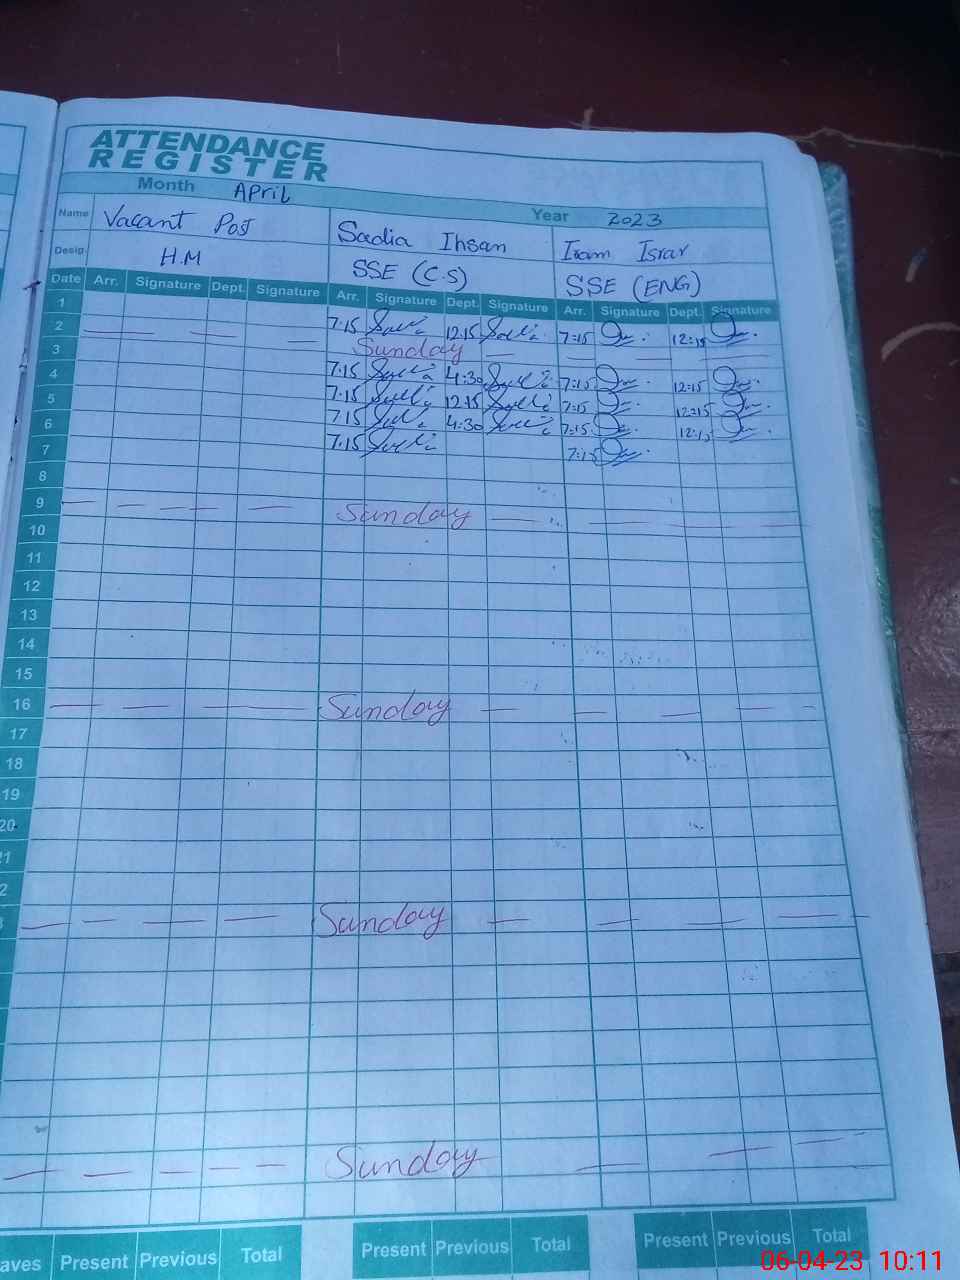 ATTENDANCE
REGISTER
Month April
Year 2023
Name Vacant Post Sadia Ihsan Iram Israr
Desig. H.M SSE (C.S) SSE (ENG)
Date Arr. Signature Dept. Signature Arr. Signature Dept. Signature Arr. Signature Dept. Signature
1 7.15 12.15 7:15 12:15
2 Sunday
3 7.15 4:30 7:15 12:15
4 7.15 12.15 7:15 12:15
5 7.15 4:30 7:15 12:15
6 7.15 7:15
7
8
9 Sunday
10
11
12
13
14
15
16 Sunday
17
18
19
20
21
2
3 Sunday
Sunday
aves Present Previous Total Present Previous Total Present Previous Total
06-04-23 10:11